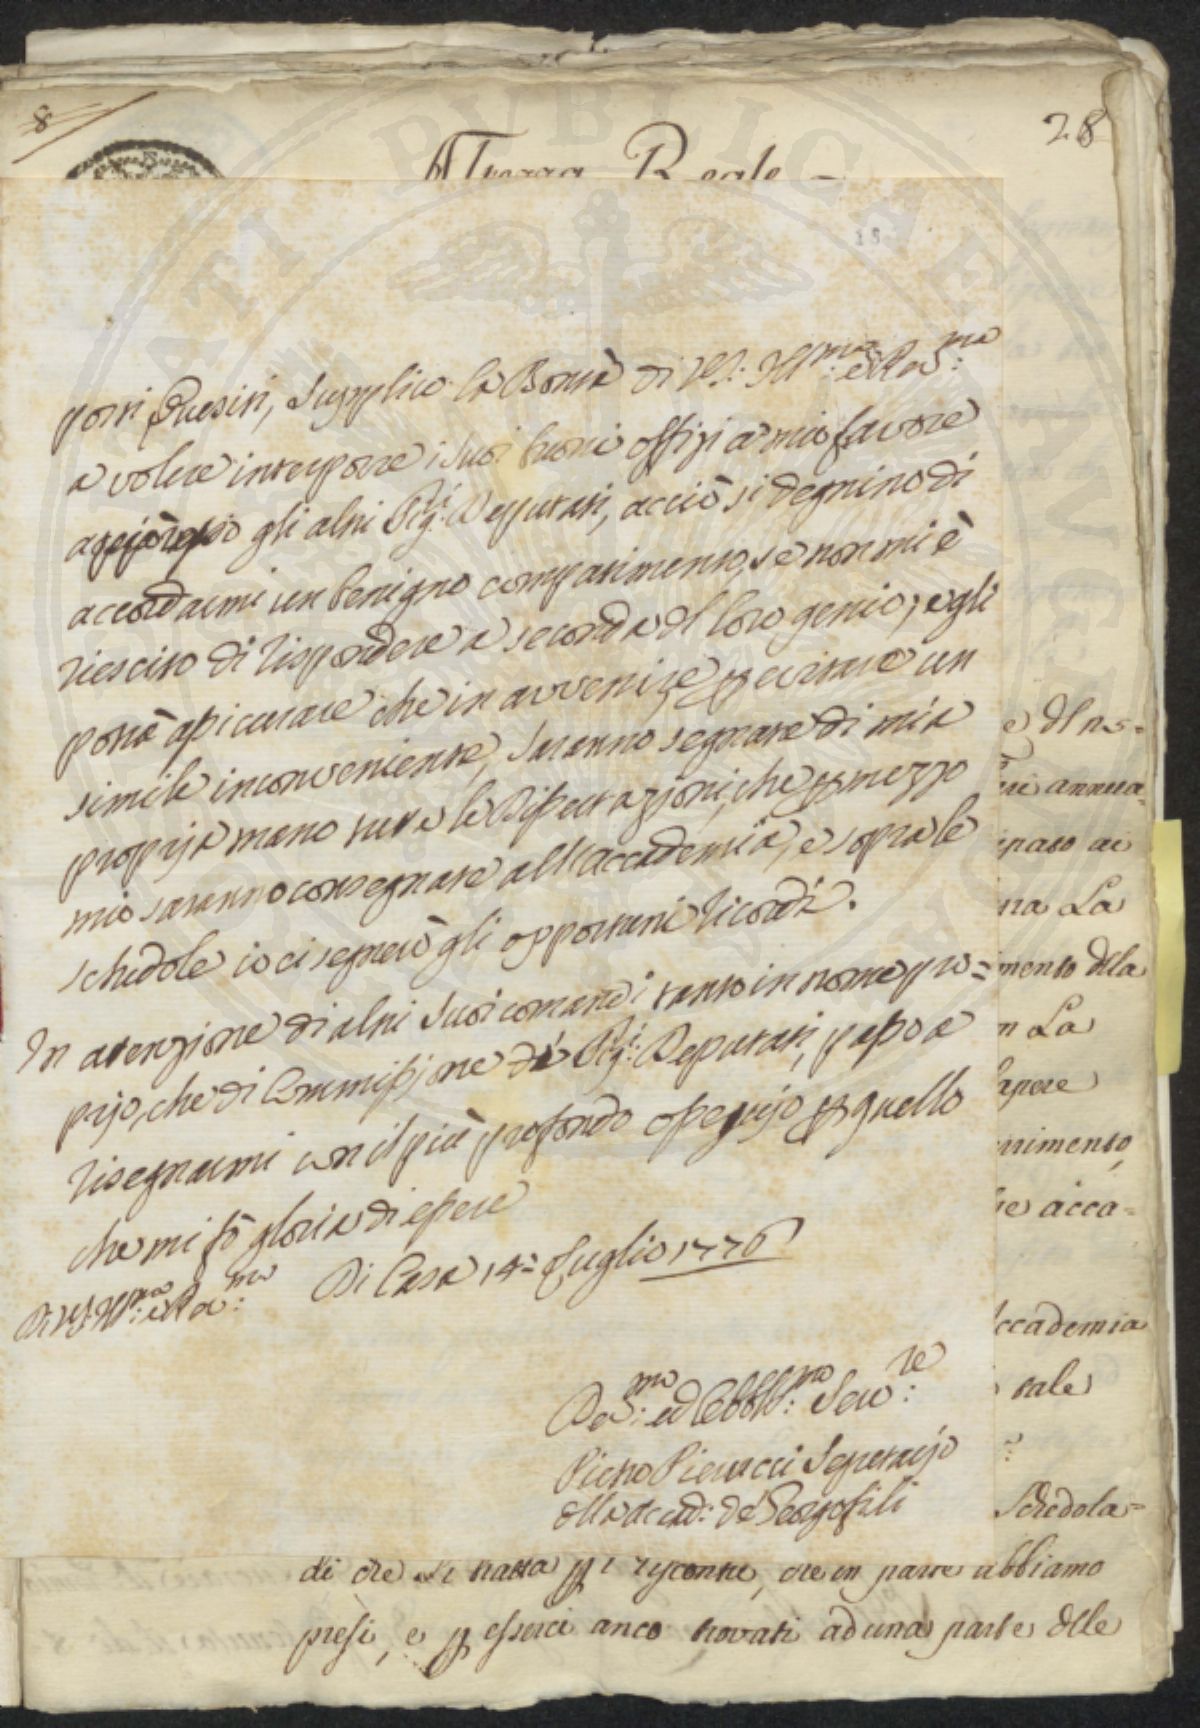 8
28
Altezza Reale
18
porri Quesiti, supplico la Bontà di V.S: Ill:ma e Rev:ma
a volere interporre i suoi buoni offizj a mio favore
appresso gli altri Sig:ri Deputati, acciò si degnino di
accordarmi un benigno compatimento, se non mi è
riescito di rispondere a seconda del loro genio; e gli
potrà assicurare che in avvenire per evitare un
simile inconveniente, saranno segnate di mia
propria mano tutte le Dissertazioni, che per mezzo
mio saranno consegnate all'accademia, e sopra le
schedole io ci segnerò gli opportuni ricordi.
In attenzione di altri suoi comandi tanto in nome pro=
prio, che di Commissione de' Sig:ri Deputati, passo a
risegnarmi con il più profondo ossequio per quello
che mi fò gloria di essere
Di V.S: Ill:ma e Rev:ma Di Casa 14: Luglio 1776
Dev:mo ed Obbl:mo Serv:re
Pietro Pierucci Segretario
della accad: de Georgofili
annua=
na La
mento dela
La
sapere
acca=
accademia
tale
Schedola=
di che si tratta per i riscontri, che in parte abbiamo
presi, e per esserci anco trovati ad una parte delle
PUBLICAE